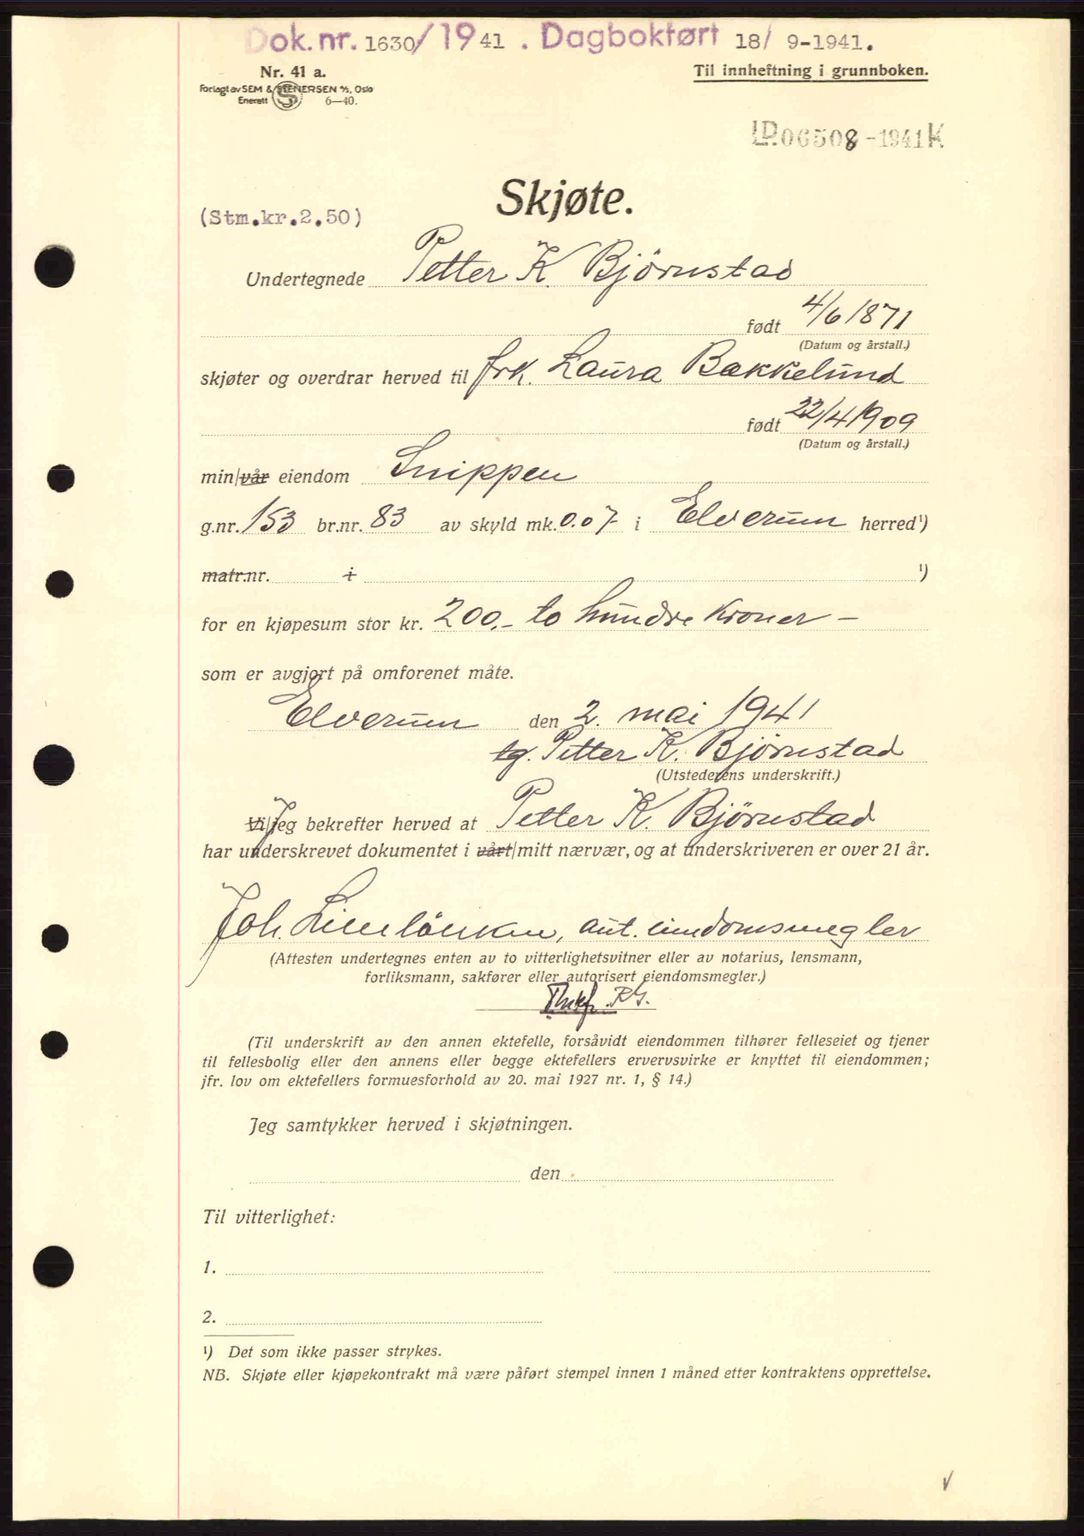 Dok. nr. 1630/1941. Dagbokført 18/ 9-1941.
Nr. 41 a.
Til innheftning i grunnboken.
Forlagt av SEM & STENERSEN A/S, Oslo
Enerett S 6—40.
LD. 06508 - 1941 K
Skjøte.
(Stm.kr.2.50)
Undertegnede Petter K Bjørnstad
født 4/6 1871
(Datum og årstall.)
skjøter og overdrar herved til frk. Laura Bakkelund
født 22/4 1909
(Datum og årstall.)
min/vår eiendom Snippen
g.nr. 153 br.nr. 83 av skyld mk. 0.07 i Elverum herred ¹)
matr.nr. i ¹)
for en kjøpesum stor kr. 200,- to hundre kroner —
som er avgjort på omforenet måte.
Elverum den 2. mai 1941
tg. Petter K. Bjørnstad
(Utstederens underskrift.)
Vi/Jeg bekrefter herved at Petter K. Bjørnstad
har underskrevet dokumentet i vårt/mitt nærvær, og at underskriveren er over 21 år.
Joh. aut. eiendomsmegler
(Attesten undertegnes enten av to vitterlighetsvitner eller av notarius, lensmann,
forliksmann, sakfører eller autorisert eiendomsmegler.)
(Til underskrift av den annen ektefelle, forsåvidt eiendommen tilhører felleseiet og tjener
til fellesbolig eller den annens eller begge ektefellers ervervsvirke er knyttet til eiendommen;
jfr. lov om ektefellers formuesforhold av 20. mai 1927 nr. 1, § 14.)
Jeg samtykker herved i skjøtningen.
den
Til vitterlighet:
1.
2.
¹) Det som ikke passer strykes.
NB. Skjøte eller kjøpekontrakt må være påført stempel innen 1 måned etter kontraktens opprettelse.